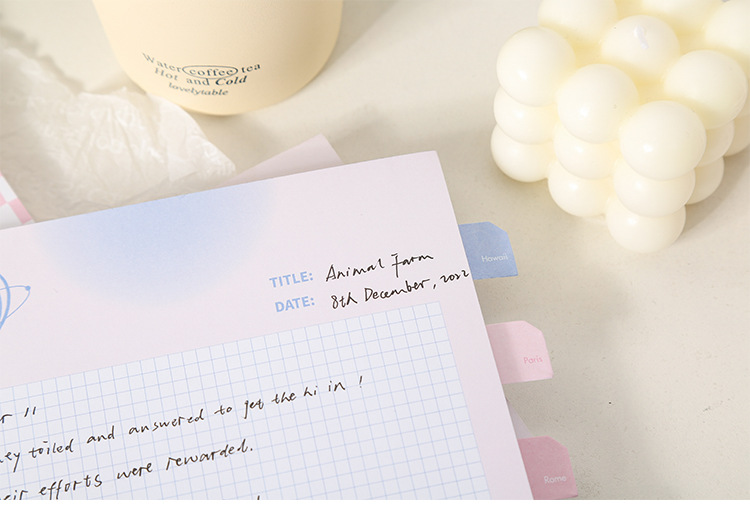 Water coffee tea
Hot and Cold
lovelytable
TITLE: Animal Farm
DATE: 8th December, 2022
Hawaii
Paris
Rome
11
toiled and answered to get the hi in !
efforts were rewarded.